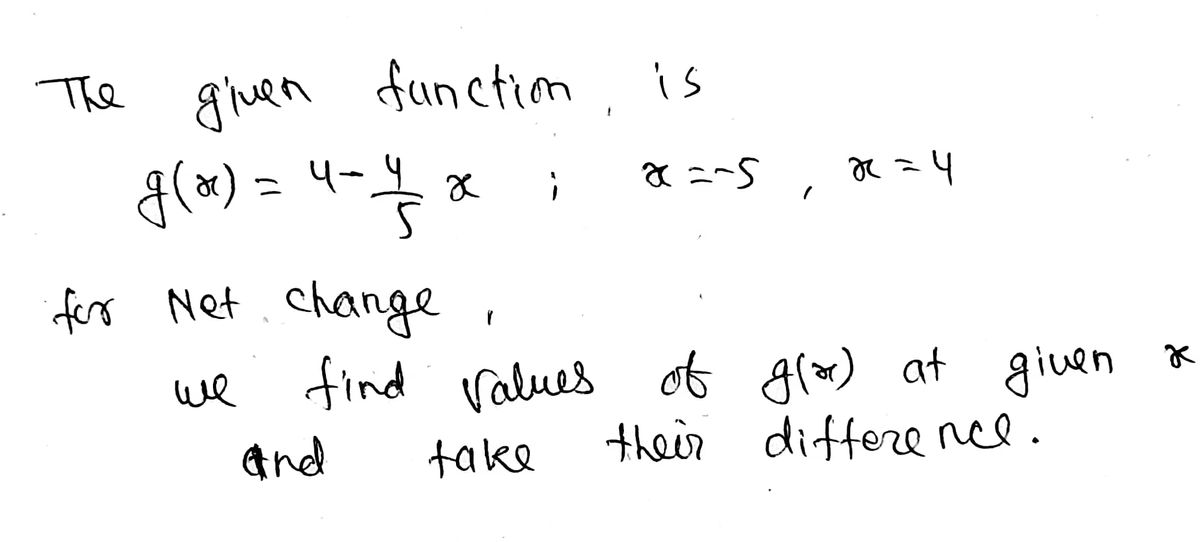 The given function is
g(x) = 4 - 4/5 x ; x = -5 , x = 4
for Net change ,
we find values of g(x) at given x
and take their difference.